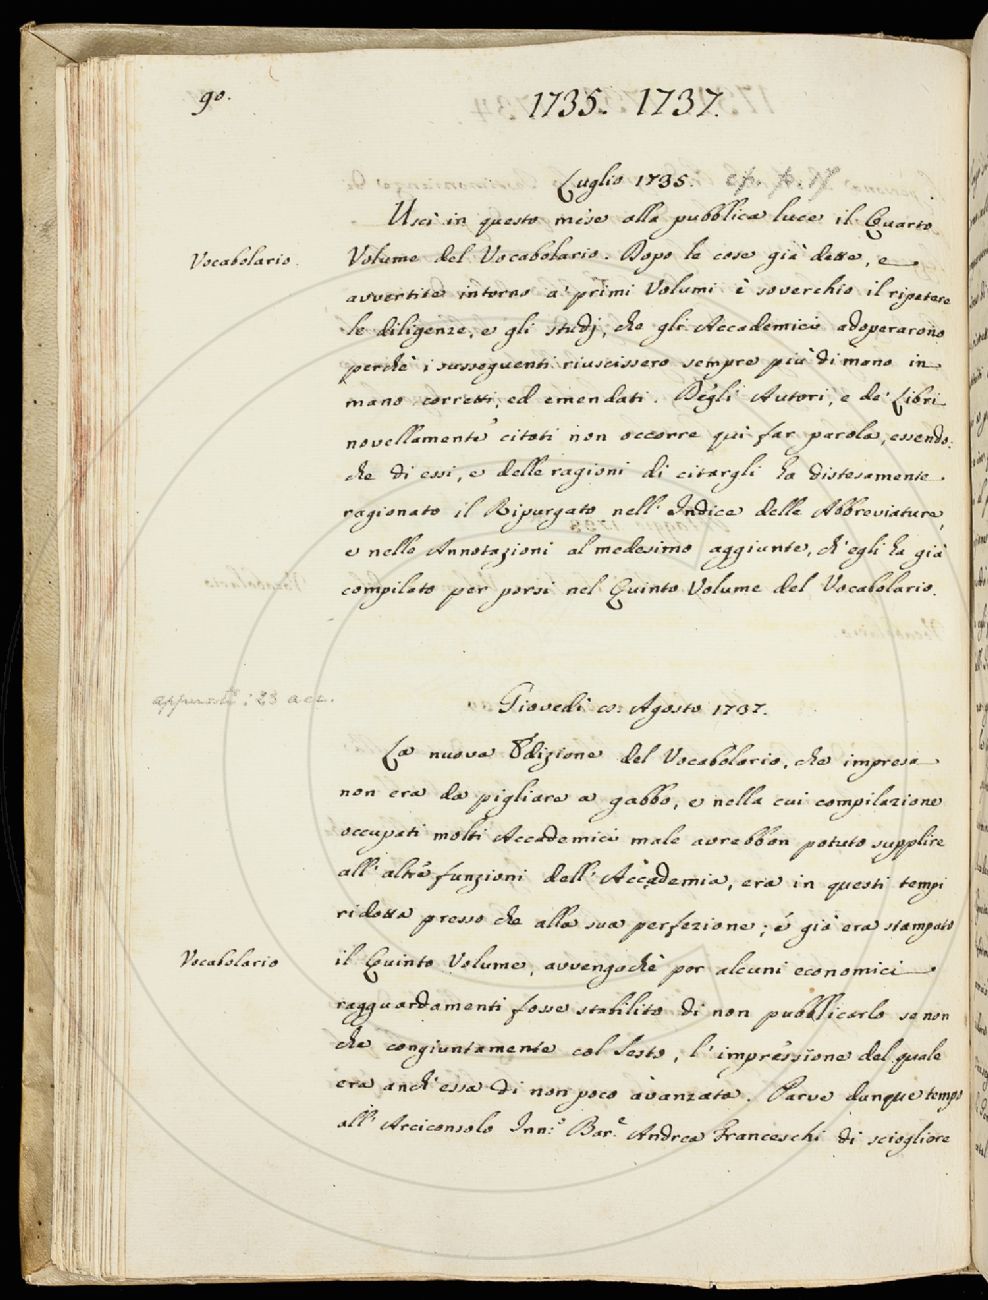 90.
1735. 1737.
Luglio 1735. cf. p. 17
Uscì in questo mese alla pubblica luce il Quarto
Vocabolario.
Volume del Vocabolario. Dopo le cose già dette, e
avvertite intorno a' primi Volumi è soverchio il ripetere
le diligenze, e gli studj, che gli Accademici adoperarono
perchè i susseguenti riuscissero sempre più di mano in
mano corretti, ed emendati. Degli Autori, e de' Libri
novellamente citati non occorre quì far parola, essendo-
che di essi, e delle ragioni di citargli ha distesamente
ragionato il Ripurgato nell' Indice delle Abbreviature,
e nelle Annotazioni al medesimo aggiunte, ch' egli ha già
compilato per porsi nel Quinto Volume del Vocabolario.
appunti: 23 acc.
Giovedì Agosto 1737.
La nuova Edizione del Vocabolario, che impresa
non era da pigliare a gabbo, e nella cui compilazione
occupati molti Accademici male avrebbon potuto supplire
all' altre funzioni dell' Accademia, era in questi tempi
ridotta presso che alla sua perfezione; e già era stampato
Vocabolario
il Quinto Volume, avvengachè per alcuni economici
ragguardamenti fosse stabilito di non pubblicarlo se non
che congiuntamente col Sesto, l' impressione del quale
era anch' essa di non poco avanzata. Parve dunque tempo
all' Arciconsolo Inn:º Bar.e Andrea Franceschi di sciogliere